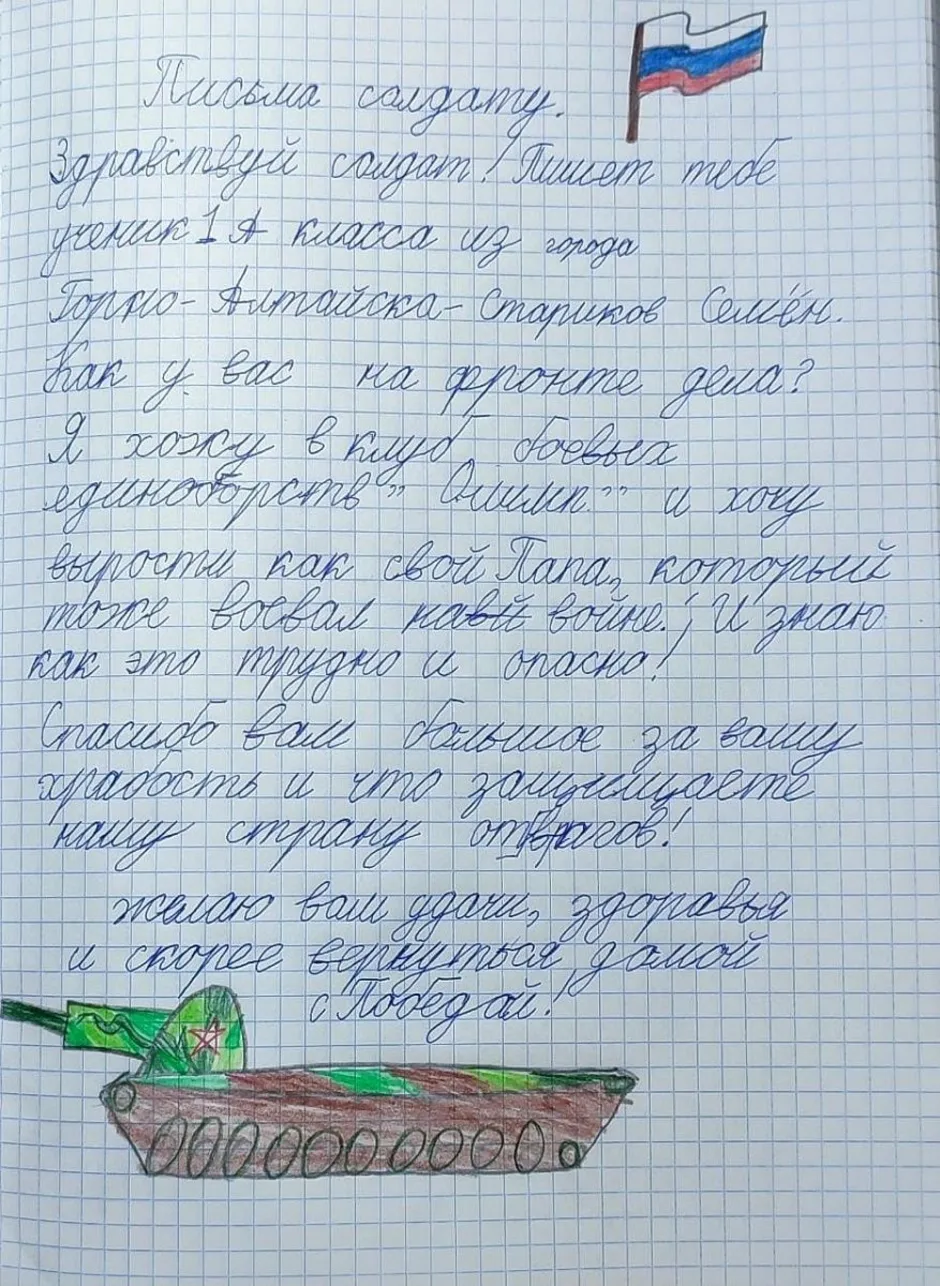 Письма солдату.
Здравствуй солдат! Пишет тебе
ученик 1 А класса из города
Горно-Алтайска-Стариков Семён.
Как у вас на фронте дела?
Я хожу в клуб боевых
единоборств „Олимп" и хочу
вырости как свой Папа, который
тоже воевал на войне! И знаю
как это трудно и опасно!
Спасибо вам большое за вашу
храбость и что защищаете
нашу страну от врагов!
желаю вам удачи, здоровья
и скорее вернуться домой
с Победой!